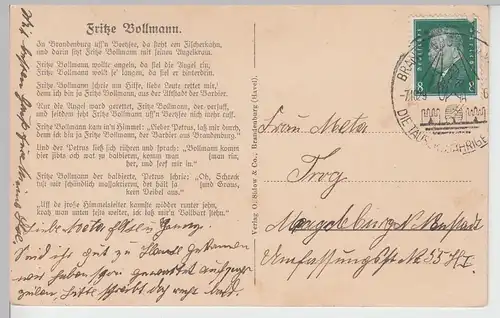 Fritze Bollmann.
Zu Brandenburg uff'n Beetzsee, da steht een Fischerkahn,
und darin sitzt Fritze Bollmann mit seinen Angelkram.
Fritze Bollmann wollte angeln, da fiel die Angel rin,
Fritze Bollmann wollt se langen, da fiel er hinterdrin.
Fritze Bollmann schrie um Hilfe, liebe Leute rettet mir,
denn ick bin ja Fritze Bollmann, aus der Altstadt der Barbier.
Nur die Angel ward gerettet, Fritze Bollmann, der versuff,
und seitdem geht Fritze Bollmann uff'n Beetzsee nich mehr ruff.
Fritze Bollmann kam in'n Himmel: "Lieber Petrus, laß mir durch,
denn ick bin ja Fritze Bollmann, der Barbier aus Brandenburg."
Und der Petrus ließ sich rühren und sprach: "Bollmann komm
hier jibts ooch wat zu balbieren, komm man rin und seef mir
in."
Fritze Bollmann der balbierte, Petrus schrie: "Oh, Schreck
tust mir schändlich massakrieren, der hält ja
Beibel aus."
"Uff de große Himmelsleiter kannste widder runter jehn,
kratz man unten immer weiter, ick laß mir'n Vollbart stehn."
Verlag O. Sidow & Co., Brandenburg (Havel).
8 8
DIE TAUSENDJÄHRIGE
Frau Meta
Trog
Magdeburg N. Neustadt
Umfassungsstr. No 55 II.
Liebe Meta
Sind ihr gut zu Hause gekommen
wir haben schon gewartet auf paar
Zeilen, bitte schreibt doch recht bald.